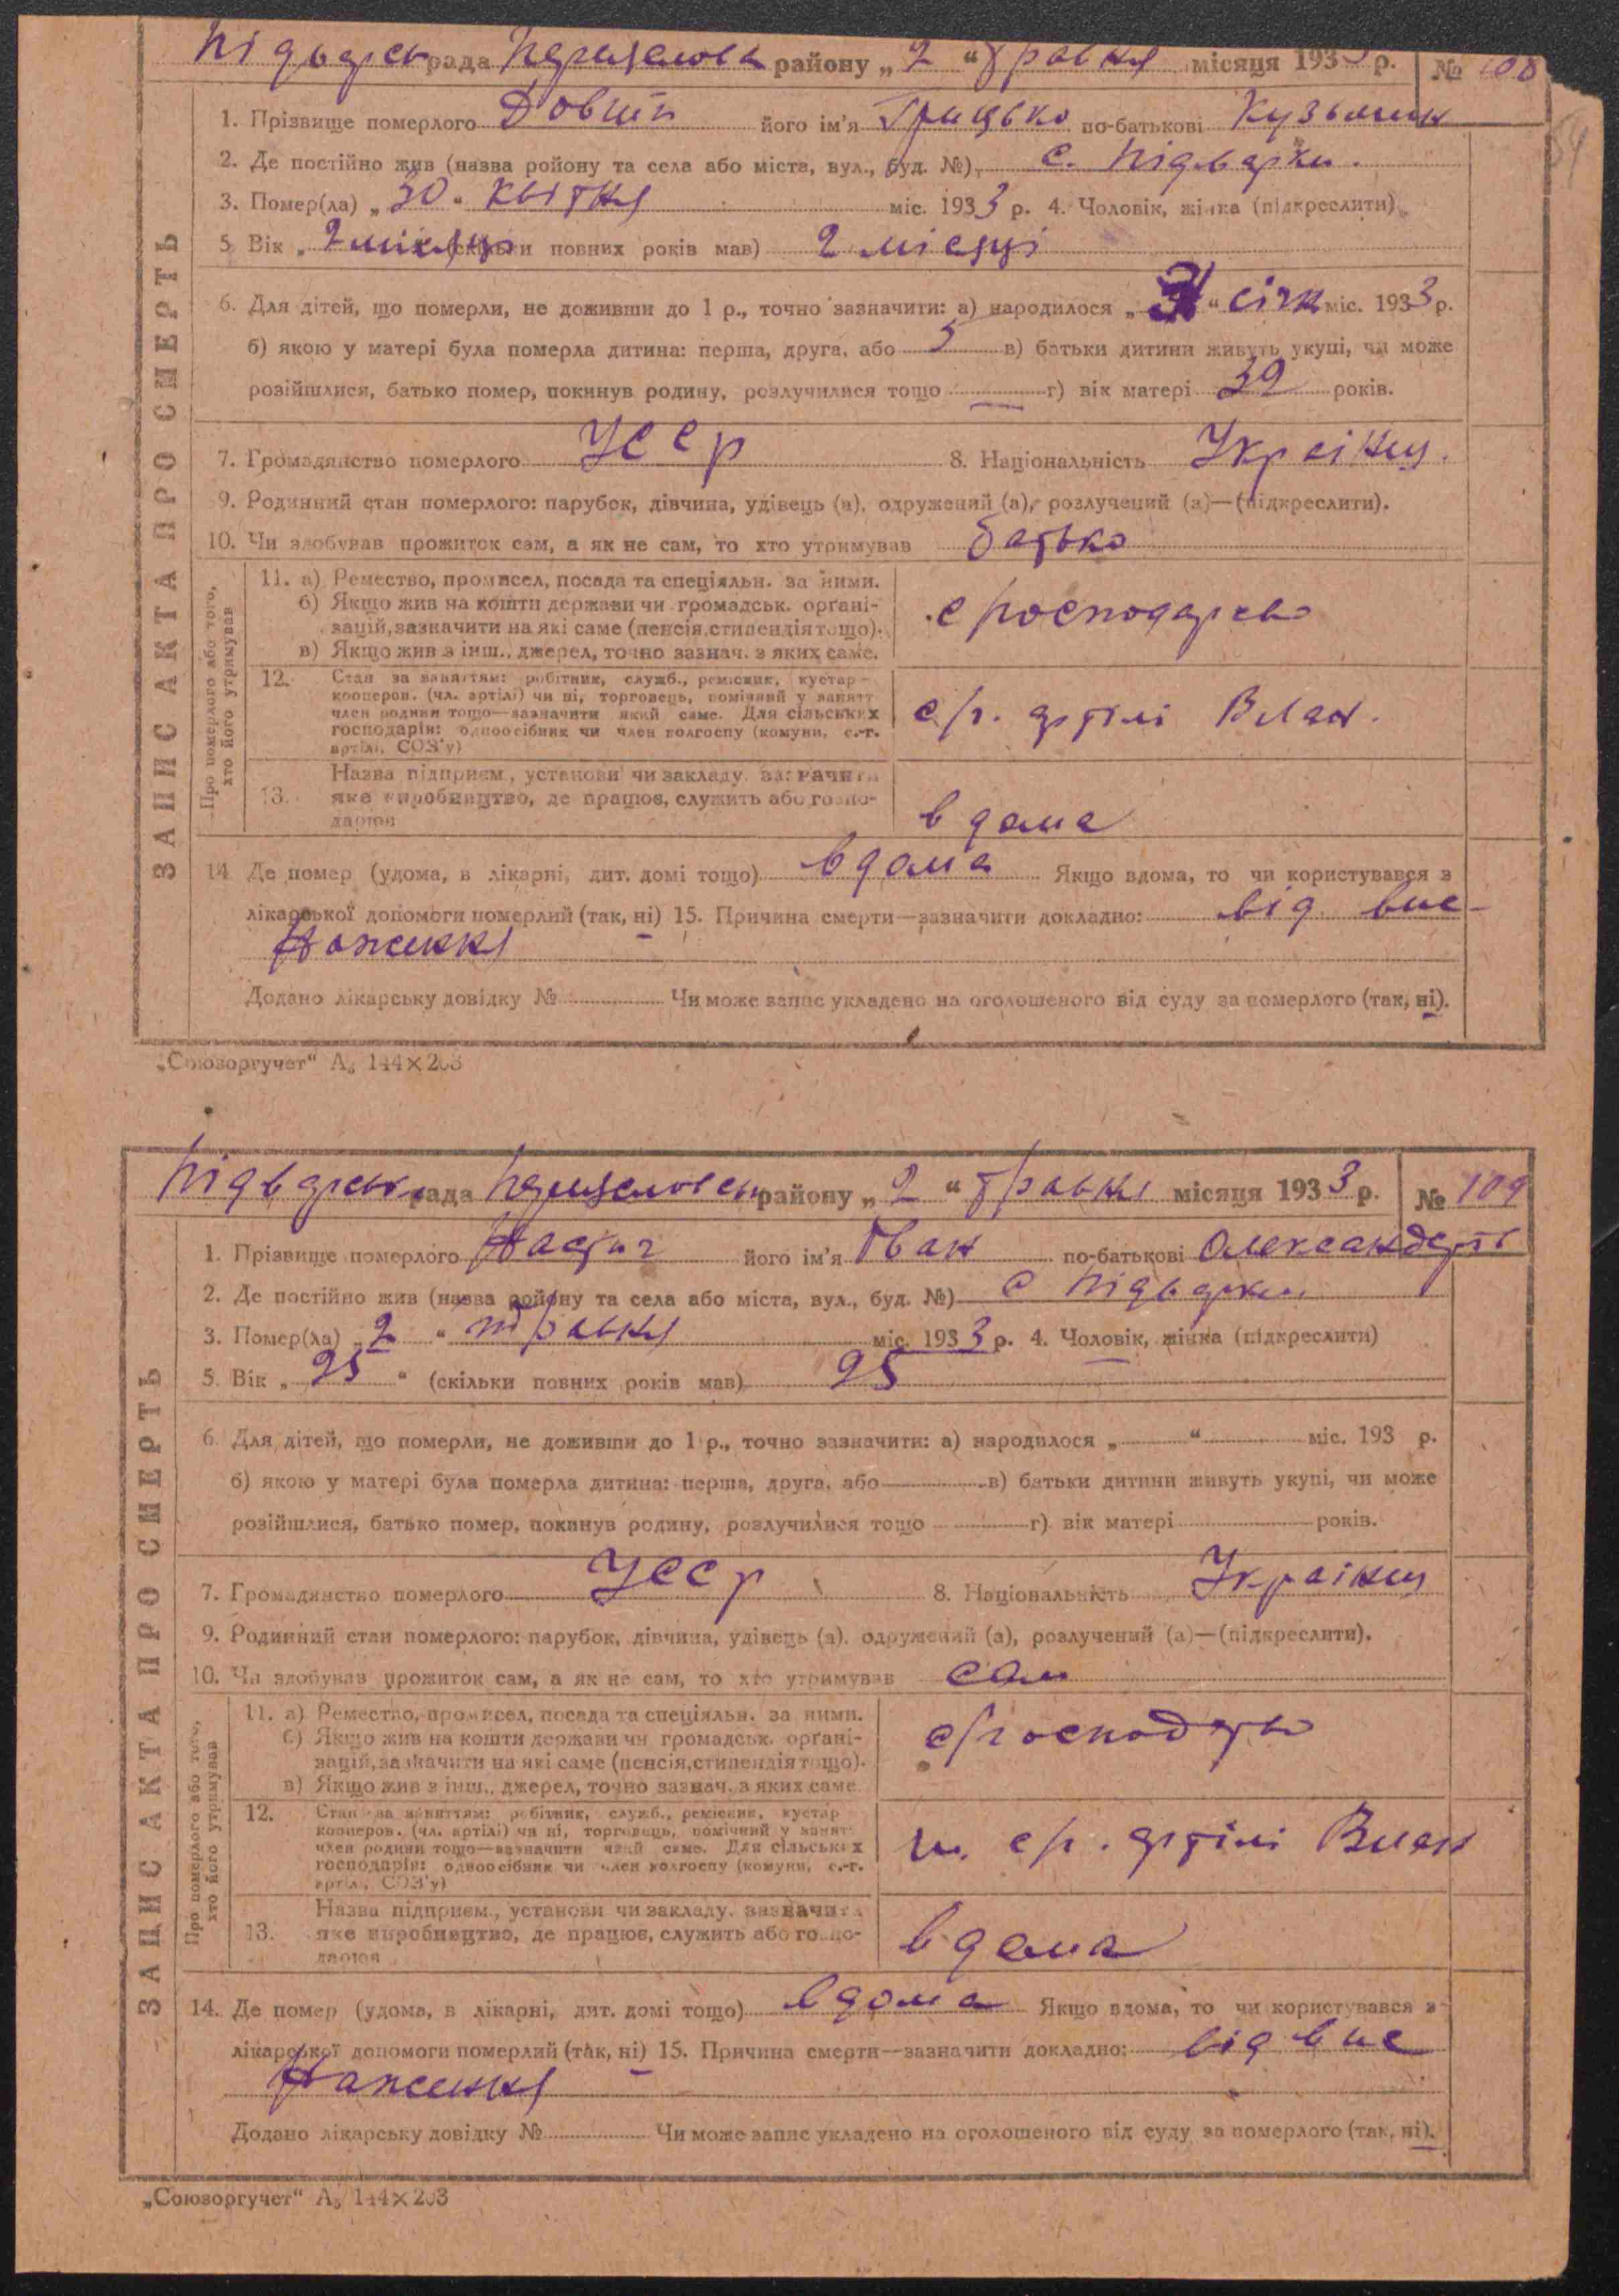 Підварсь рада Переяслівськ району „ 2 “ травня місяця 1933 р. № 108
54
1. Прізвище померлого Довгий його ім'я Грицько по-батькові Кузьмич
2. Де постійно жив (назва ройону та села або міста, вул., буд. №) с. Підварки.
3. Помер(ла) „ 30 “ квітня міс. 1933 р. 4. Чоловік, жінка (підкреслити)
5. Вік „ 2 місяці (скільки повних років мав) 2 місяці
6. Для дітей, що померли, не доживши до 1 р., точно зазначити: а) народилося „ “ січн міс. 1933 р.
б) якою у матері була померла дитина: перша, друга, або 5 в) батьки дитини живуть укупі, чи може
розійшлися, батько помер, покинув родину, розлучилися тощо — г) вік матері 39 років.
7. Громадянство померлого УССР 8. Національність Українц.
9. Родинний стан померлого: парубок, дівчина, удівець (а), одружений (а), розлучений (а)—(підкреслити).
10. Чи здобував прожиток сам, а як не сам, то хто утримував батько
ЗАПИС АКТА ПРО СМЕРТЬ
Про померлого або того,
хто його утримував
11. а) Ремество, промисел, посада та спеціяльн. за ними.
б) Якщо жив на кошти держави чи громадськ. орґані-
зацій, зазначити на які саме (пенсія, стипендія тощо).
в) Якщо жив з інш., джерел, точно зазнач. з яких саме.
с/господарсво
12. Стан за заняттям: робітник, служб., ремісник, кустар-
кооперов. (чл. артілі) чи ні, торговець, помічний у занятт
член родини тощо—зазначити який саме. Для сільських
господарів: одноосібник чи член колгоспу (комуни, с.-г.
артілі, СОЗ'у)
с/г. артілі Влан.
13. Назва підприєм., установи чи закладу. зазначити
яке виробництво, де працює, служить або госпо-
дарює
вдома
14. Де помер (удома, в лікарні, дит. домі тощо) вдома Якщо вдома, то чи користувався з
лікарської допомоги померлий (так, ні) 15. Причина смерти—зазначити докладно: від вис-
наження
Додано лікарську довідку № Чи може запис укладено на оголошеного від суду за померлого (так, ні).
„Союзоргучет“ А₅ 144×203
Підварськ рада Переяслівськ району „ 2 “ травня місяця 1933 р. № 109
1. Прізвище померлого його ім'я Іван по-батькові Олександров
2. Де постійно жив (назва ройону та села або міста, вул., буд. №) с Підварки
3. Помер(ла) „ 2 “ травня міс. 1933 р. 4. Чоловік, жінка (підкреслити)
5. Вік „ 25 “ (скільки повних років мав) 25
6. Для дітей, що померли, не доживши до 1 р., точно зазначити: а) народилося „ “ міс. 193 р.
б) якою у матері була померла дитина: перша, друга, або в) батьки дитини живуть укупі, чи може
розійшлися, батько помер, покинув родину, розлучилися тощо г) вік матері років.
7. Громадянство померлого УССР 8. Національність Українц
9. Родинний стан померлого: парубок, дівчина, удівець (а), одружений (а), розлучений (а)—(підкреслити).
10. Чи здобував прожиток сам, а як не сам, то хто утримував сам
ЗАПИС АКТА ПРО СМЕРТЬ
Про померлого або того,
хто його утримував
11. а) Ремество, промисел, посада та спеціяльн. за ними.
б) Якщо жив на кошти держави чи громадськ. орґані-
зацій, зазначити на які саме (пенсія, стипендія тощо).
в) Якщо жив з інш., джерел, точно зазнач. з яких саме
с/господарь
12. Стан за заняттям: робітник, служб., ремісник, кустар
кооперов. (чл. артілі) чи ні, торговець, помічний у занят
член родини тощо—зазначити який саме. Для сільських
господарів: одноосібник чи член колгоспу (комуни, с.-г.
артілі, СОЗ'у)
ч. с/г. артілі Влан
13. Назва підприєм., установи чи закладу. зазначити
яке виробництво, де працює, служить або госпо-
дарює
вдома
14. Де помер (удома, в лікарні, дит. домі тощо) вдома Якщо вдома, то чи користувався з
лікарської допомоги померлий (так, ні) 15. Причина смерти—зазначити докладно: від вис
наження
Додано лікарську довідку № Чи може запис укладено на оголошеного від суду за померлого (так, ні).
„Союзоргучет“ А₅ 144×203